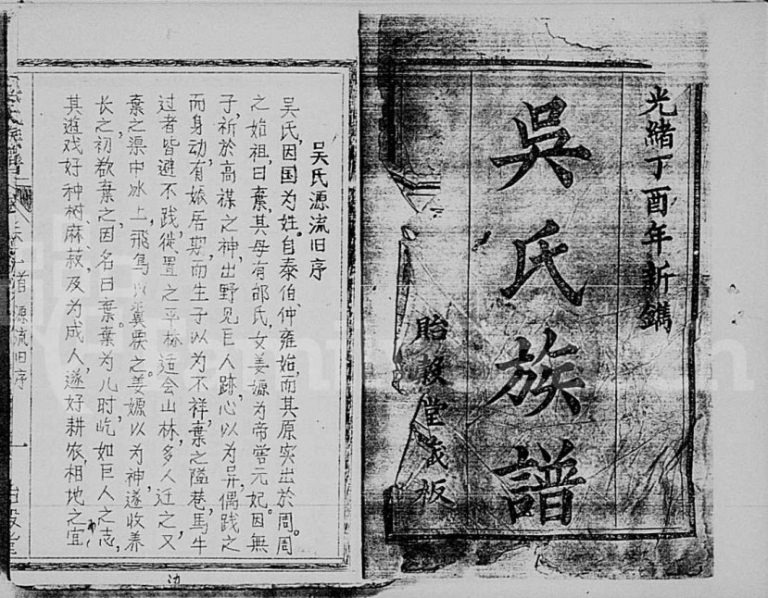 光緒丁酉年新鐫
吳氏族譜
貽穀堂藏板
吴氏源流旧序
吴氏因国为姓。自泰伯、仲雍始,而其原实出於周。周
之始祖曰棄,其母有邰氏女姜嫄为帝喾元妃。因無
子,祈於高禖之神,出野见巨人跡,心以为异,偶践之
而身动有娠,居期而生子,以为不祥,棄之隘巷,馬牛
过者皆避不践,徙置之平林,适会山林多人,迁之,又
棄之渠中冰上,飛鳥以翼覆之。姜嫄以为神,遂收养
长之。初欲棄之,因名曰棄。棄为儿时,屹如巨人之志,
其遊戏好种树麻菽,及为成人,遂好耕农,相地之宜
源流旧序